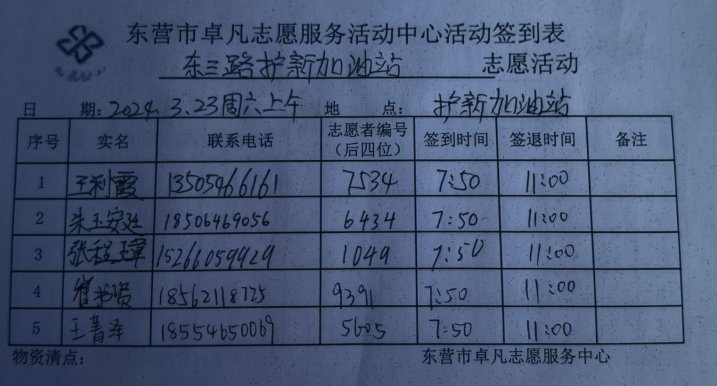 东营市卓凡志愿服务活动中心活动签到表
东三路护新加油站 志愿活动
日 期: 2024.3.23周六上午 地 点: 护新加油站
序号 实名 联系电话 志愿者编号（后四位） 签到时间 签退时间 备注
1 王利霞 13505466161 7534 7:50 11:00
2 朱玉安 18506469056 6434 7:50 11:00
3 张程玉 15266059929 1049 7:50 11:00
4 18562118725 9391 7:50 11:00
5 王菁泽 18554650069 5605 7:50 11:00
物资清点: 东营市卓凡志愿服务中心